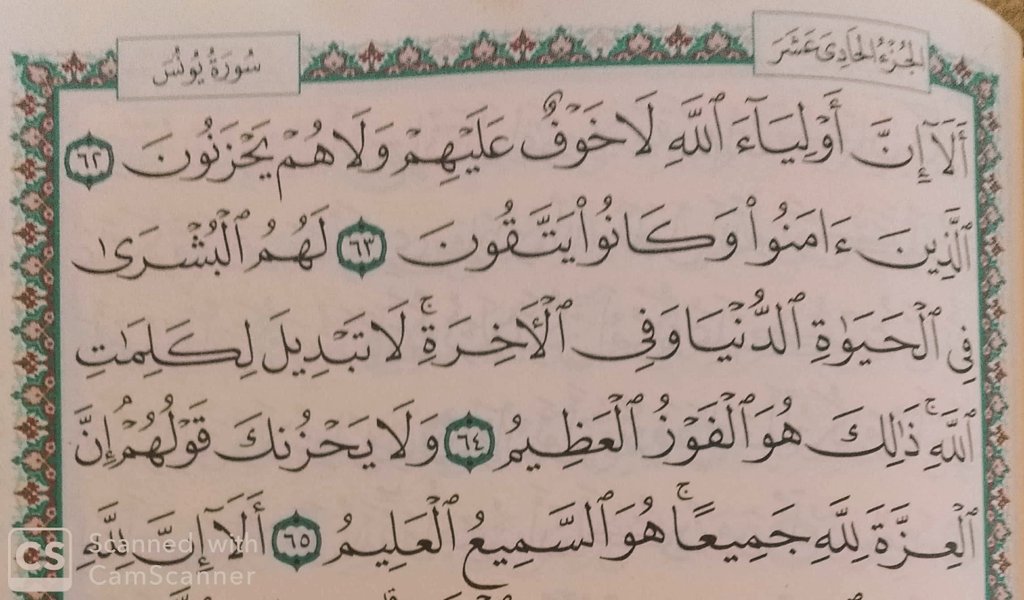 الجزء الحادي عشر
سورة يونس
أَلَآ إِنَّ أَوْلِيَآءَ ٱللَّهِ لَا خَوْفٌ عَلَيْهِمْ وَلَا هُمْ يَحْزَنُونَ ٦٢
ٱلَّذِينَ ءَامَنُوا۟ وَكَانُوا۟ يَتَّقُونَ ٦٣ لَهُمُ ٱلْبُشْرَىٰ
فِى ٱلْحَيَوٰةِ ٱلدُّنْيَا وَفِى ٱلْءَاخِرَةِ ۚ لَا تَبْدِيلَ لِكَلِمَٰتِ
ٱللَّهِ ۚ ذَٰلِكَ هُوَ ٱلْفَوْزُ ٱلْعَظِيمُ ٦٤ وَلَا يَحْزُنكَ قَوْلُهُمْ ۘ إِنَّ
ٱلْعِزَّةَ لِلَّهِ جَمِيعًا ۚ هُوَ ٱلسَّمِيعُ ٱلْعَلِيمُ ٦٥ أَلَآ إِنَّ لِلَّهِ
CS Scanned with
CamScanner